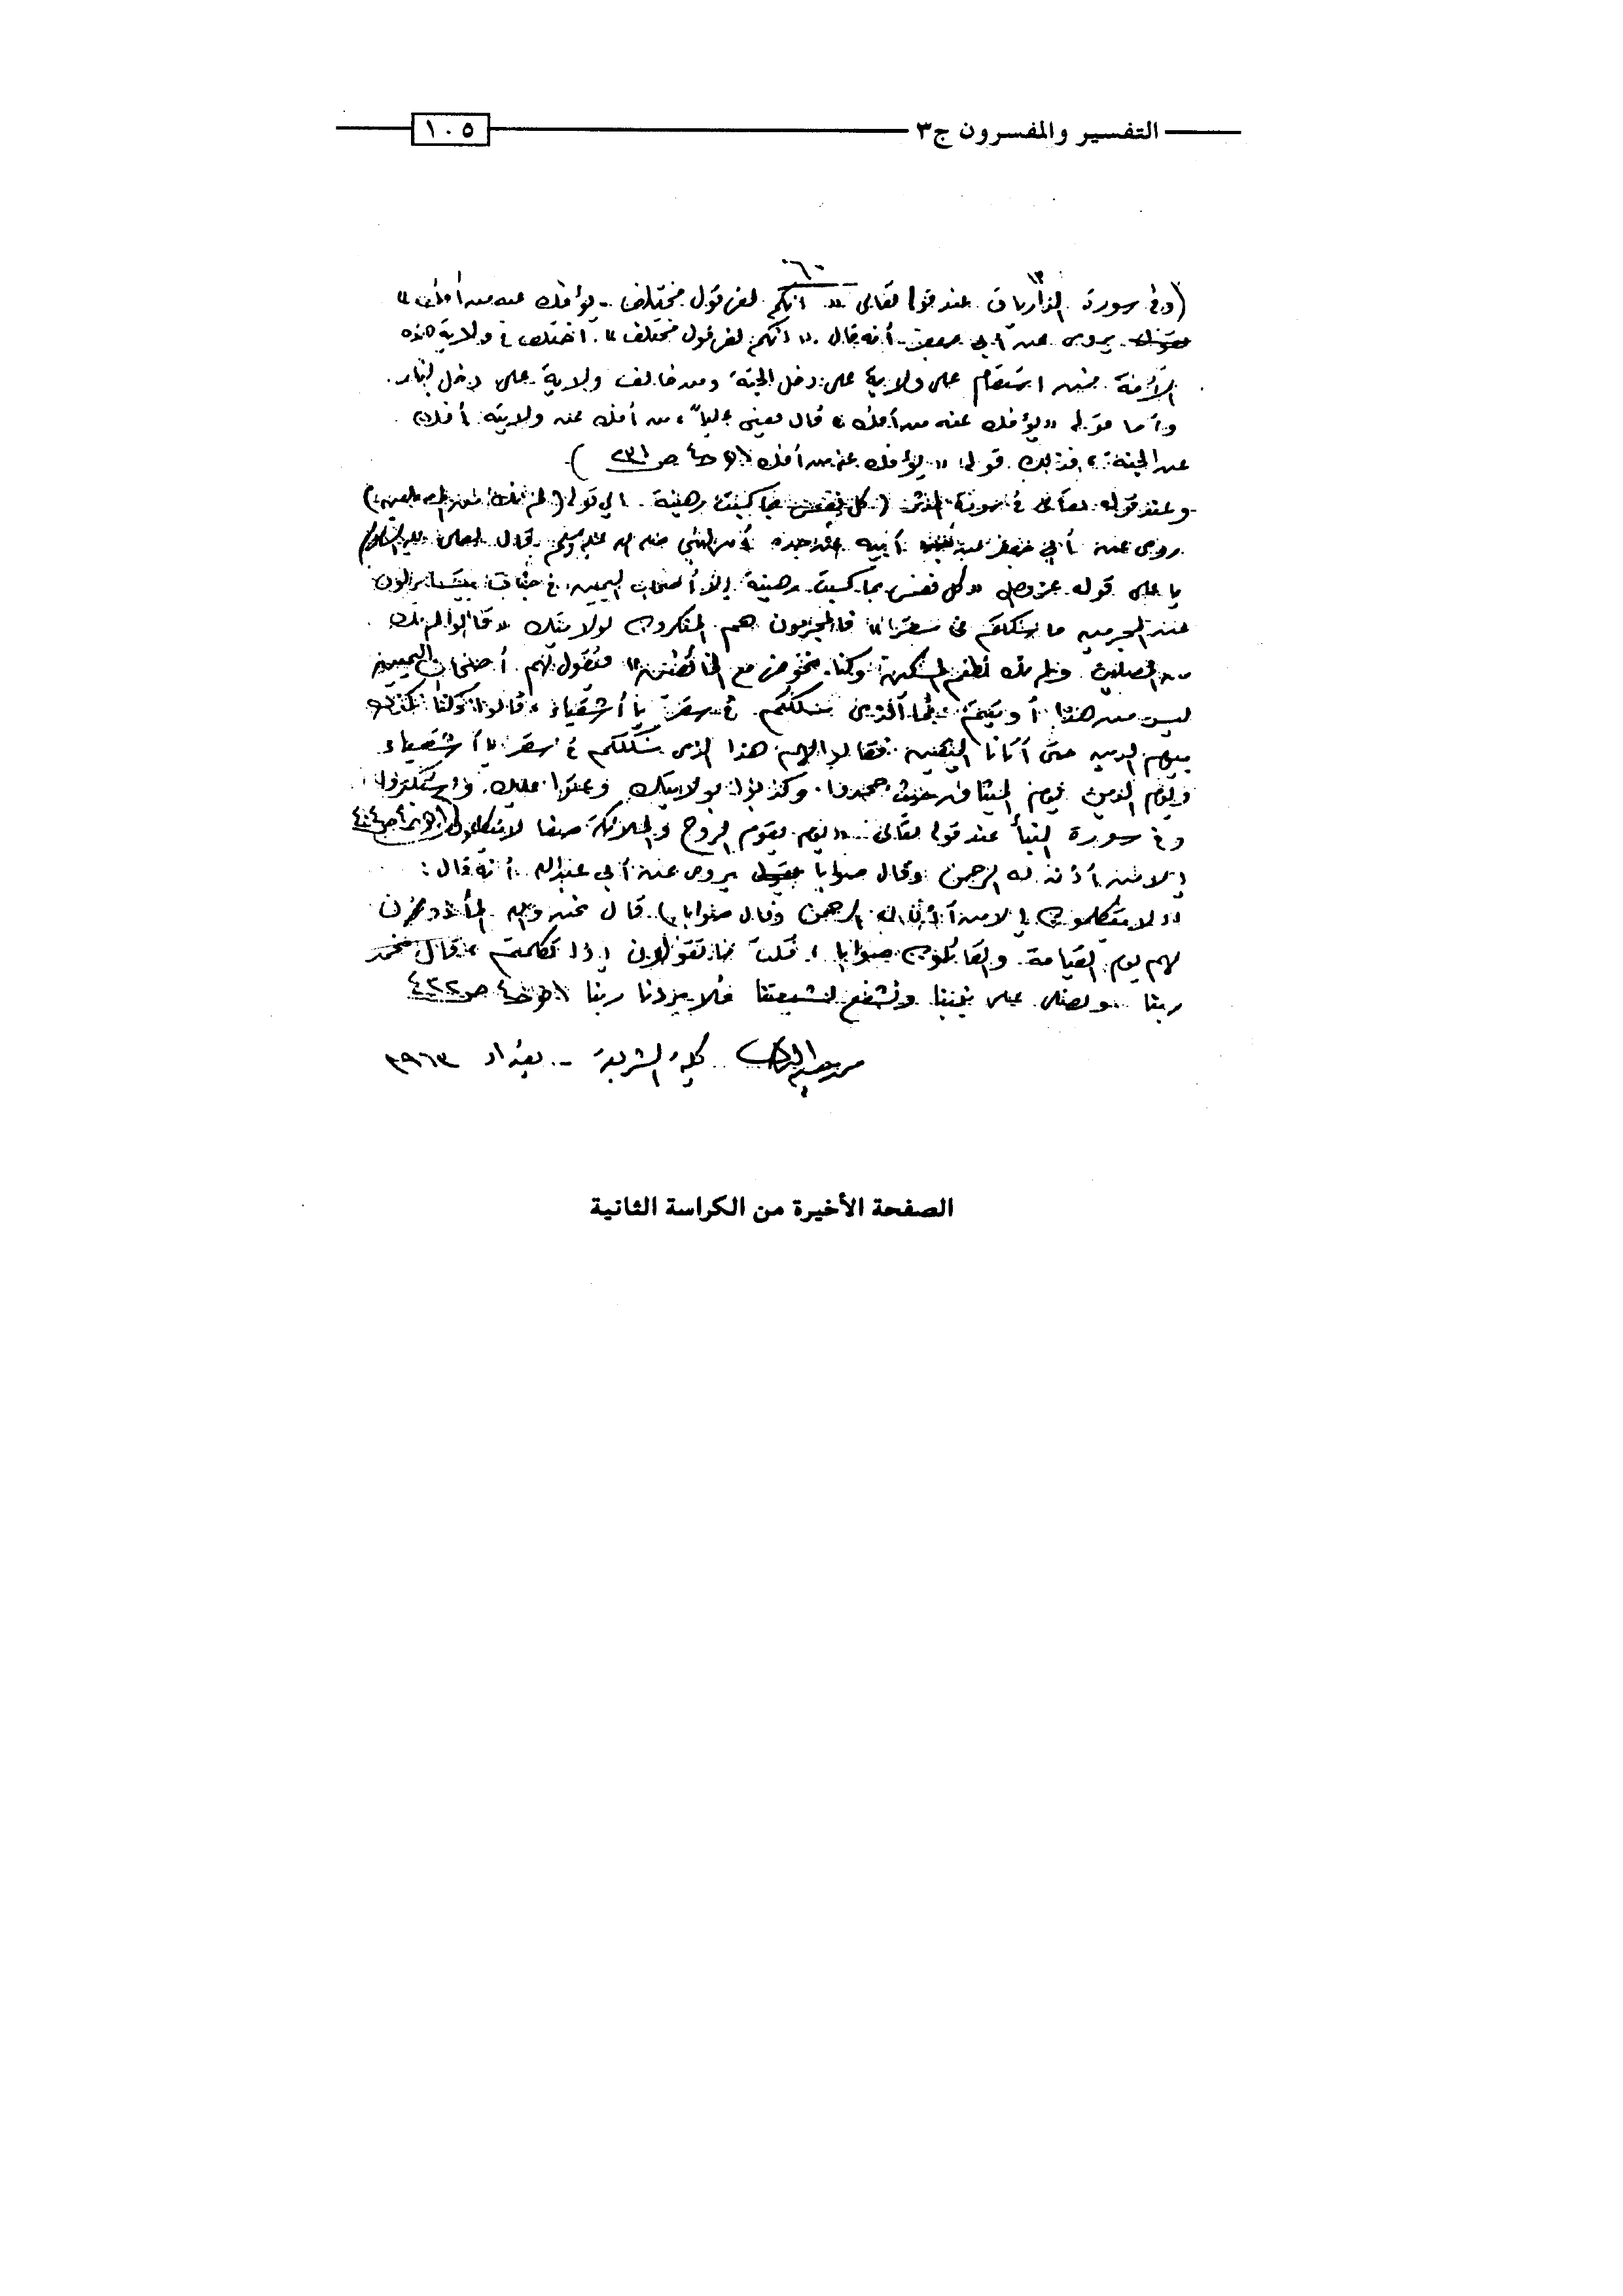 التفسير والمفسرون ج٣
١٠٥
٦٠
١٣
(وفى سورة الذاريات عند قوله تعالى «انكم لفى قول مختلف - يؤفك عنه من أفك»
يروى عن أبى جعفر أنه قال «انكم لفى قول مختلف» اختلف فى ولاية هذه
الأمة فمن استقام على ولاية على دخل الجنة ومن خالف ولاية على دخل النار.
وأما قوله «يؤفك عنه من أفك» قال يعنى عليا، من أفك عن ولايته أفك
عن الجنة، فذلك قوله «يؤفك عنه من أفك» ص ٢٣١)
وعند قوله تعالى فى سورة المدثر (كل نفس بما كسبت رهينة. الى قوله (لم نك من المصلين)
روى عن أبى جعفر عن أبيه عن جده أن النبى صلى الله عليه وسلم قال لعلى عليه السلام
يا على قوله عز وجل «كل نفس بما كسبت رهينة إلا أصحاب اليمين فى جنات يتساءلون
عن المجرمين ما سلككم فى سقر» فالمجرمون هم المنكرون لولايتك «قالوا لم نك
من المصلين ولم نك نطعم المسكين وكنا نخوض مع الخائضين» فيقول لهم أصحاب اليمين
ليس من هذا أوتيتم فما الذى سلككم فى سقر يا أشقياء، قالوا وكنا نكذب
بيوم الدين حتى أتانا اليقين فقالوا لهم هذا الذى سلككم فى سقر يا أشقياء
ويوم الدين يوم الميثاق حيث جحدوا وكذبوا بولايتك وعتوا عليك واستكبروا
وفى سورة النبأ عند قوله تعالى «يوم يقوم الروح والملائكة صفا لا يتكلمون
إلا من أذن له الرحمن وقال صوابا يروى عن أبى عبدالله أنه قال:
«لا يتكلمون إلا من أذن له الرحمن وقال صوابا» قال نحن والله المأذون
لهم يوم القيامة. والقائلون صوابا، قلت ما تقولون إذا تكلمتم، قال نحمد
ربنا ونصلى على نبينا ونشفع لشيعتنا فلا يردنا ربنا ص ٤٣٢
كلية الشريعة - بغداد ١٩٦٣
الصفحة الأخيرة من الكراسة الثانية